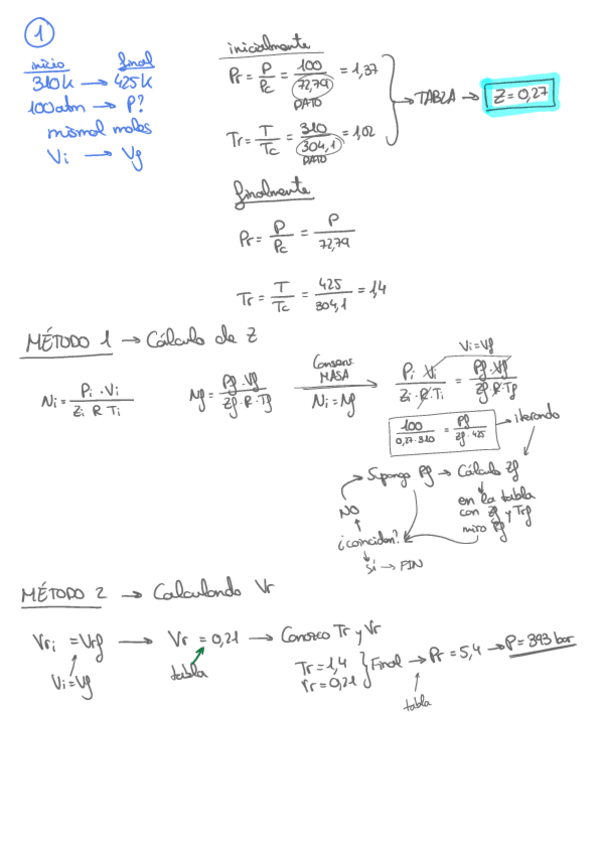 1
inicio final
310k → 425k
100atm → P?
mismol moles
Vi → Vf
inicialmente
Pr = P/Pc = 100/72,79 = 1,37
DATO
Tr = T/Tc = 310/304,1 = 1,02
DATO
→ TABLA → Z = 0,27
finalmente
Pr = P/Pc = P/72,79
Tr = T/Tc = 425/304,1 = 1,4
MÉTODO 1 → Cálculo de Z
Ni = Pi · Vi / Zi R Ti
Nf = Pf · Vf / Zf · R · Tf
Conserv. MASA
Ni = Nf
Vi = Vf
Pi Vi / Zi · R · Ti = Pf · Vf / Zf · R · Tf
100 / 0,27 · 310 = Pf / Zf · 425 → iterando
Supongo Pf → Cálculo Zf
en la tabla
con Zf y Trf
miro Pf
¿coinciden?
NO
Sí → FIN
MÉTODO 2 → Calculando Vr
Vri = Vrf → Vr = 0,21 → Conozco Tr y Vr
Vi = Vf
tabla
Tr = 1,4
Vr = 0,21
} Final → Pr = 5,4 → P = 393 bar
tabla